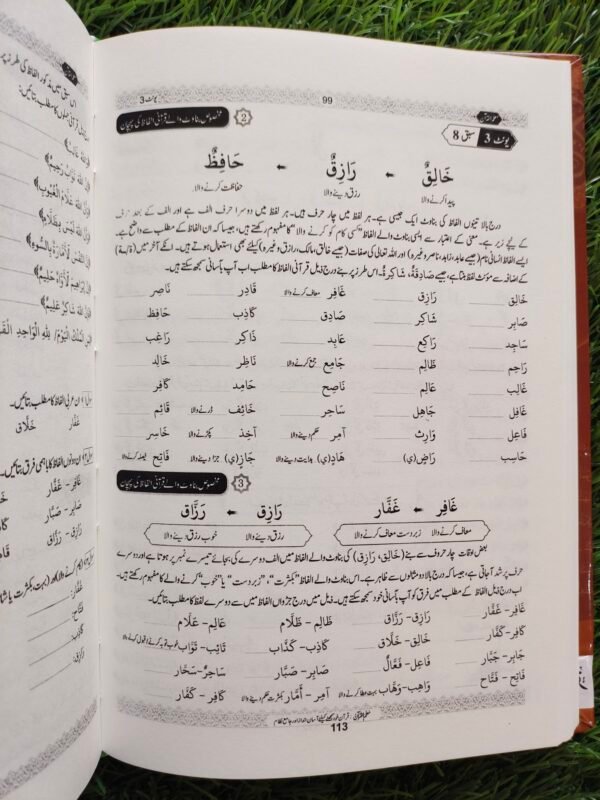 یونٹ 3
99
معلم القرآن
یونٹ 3 سبق 8
2 مخصوص بناوٹ والے قرآنی الفاظ کی پہچان
خَالِقٌ ← رَازِقٌ ← حَافِظٌ
پیدا کرنے والا رزق دینے والا حفاظت کرنے والا
درج بالا تینوں الفاظ کی بناوٹ ایک جیسی ہے۔ ہر لفظ میں چار حروف ہیں۔ ہر لفظ میں دوسرا حرف الف ہے اور الف کے بعد حرف
کے نیچے زیر ہے۔ معنی کے اعتبار سے ایسی بناوٹ والے الفاظ "کسی کام کو کرنے والا" کا مفہوم رکھتے ہیں، جیسا کہ ان الفاظ کے مطلب سے واضح ہے۔
ایسے الفاظ انسانی نام (جیسے عابد، زاہد، ناصر وغیرہ) اور اللہ تعالی کی صفات (جیسے خالق، مالک، رازق وغیرہ) کیلئے بھی استعمال ہوتے ہیں۔ انکے آخر میں (ة)
کے اضافہ سے مؤنث لفظ بنتا ہے، جیسے صَادِقَةٌ، شَاكِرَةٌ۔ اس طرز پر بنے درج ذیل قرآنی الفاظ کا مطلب اب آپ بآسانی سمجھ سکتے ہیں۔
خَالِق رَازِق غَافِر معاف کرنے والا قَادِر نَاصِر
صَابِر شَاكِر صَادِق كَاذِب حَافِظ
سَاجِد رَاكِع عَابِد ذَاكِر رَاغِب
رَاحِم ظَالِم جَامِع جمع کرنے والا نَاظِر خَالِد
غَالِب عَالِم نَاصِح حَامِد كَافِر
غَافِل جَاهِل سَاحِر خَائِف ڈرنے والا قَائِم
فَاعِل وَارِث آمِر حکم دینے والا آخِذ پکڑنے والا خَاسِر
حَاسِب رَاضٍ (ي) هَادٍ (ي) ہدایت دینے والا جَازٍ (ي) جزا دینے والا فَاتِح فیصلہ کرنے والا
3 مخصوص بناوٹ والے قرآنی الفاظ کی پہچان
غَافِر ← غَفَّار رَازِق ← رَزَّاق
معاف کرنے والا زبردست معاف کرنے والا رزق دینے والا خوب رزق دینے والا
بعض اوقات چار حروف سے بنے (خَالِق، رَازِق) کی بناوٹ والے الفاظ میں الف دوسرے کی بجائے تیسرے نمبر پر ہوتا ہے اور دوسرے
حرف پر شد آ جاتی ہے، جیسا کہ درج بالا دو مثالوں سے ظاہر ہے۔ اس بناوٹ والے الفاظ "بکثرت"، "زبردست" یا "خوب" کرنے والے کا مفہوم رکھتے ہیں۔
اب درج ذیل الفاظ کے مطلب میں فرق کو آپ بآسانی خود سمجھ سکتے ہیں۔ ذیل میں درج جڑواں الفاظ میں سے دوسرے لفظ کا مطلب بتائیں۔
غَافِر- غَفَّار رَازِق- رَزَّاق ظَالِم- ظَلَّام عَالِم- عَلَّام
كَافِر- كَفَّار خَالِق- خَلَّاق كَاذِب- كَذَّاب تَائِب- تَوَّاب خوب توبہ کرنے و قبول کرنے والا
جَابِر- جَبَّار فَاعِل- فَعَّال صَابِر- صَبَّار سَاحِر- سَحَّار
فَاتِح- فَتَّاح وَاهِب- وَهَّاب بہت عطا کرنے والا آمِر- أَمَّار بکثرت حکم دینے والا كَافِر- كَفَّار
معلم القرآن: قرآن فہمی کیلئے آسان انداز اور جامع نظام
113
اس سبق میں مذکور الفاظ کی طرز پر
إِنَّ اللهَ تَوَّابٌ رَّحِيمٌ﴾
لِلّٰهِ الْوَاحِدِ الْقَ
ان عربی الفاظ کا مطلب بتائیں۔
غَفَّار خَلَّاق
كَافِر- كَفَّار
صَابِر- صَبَّار
رَازِق- رَزَّاق
غفَّار:
فتَّاح:
كاذب:
رازق: